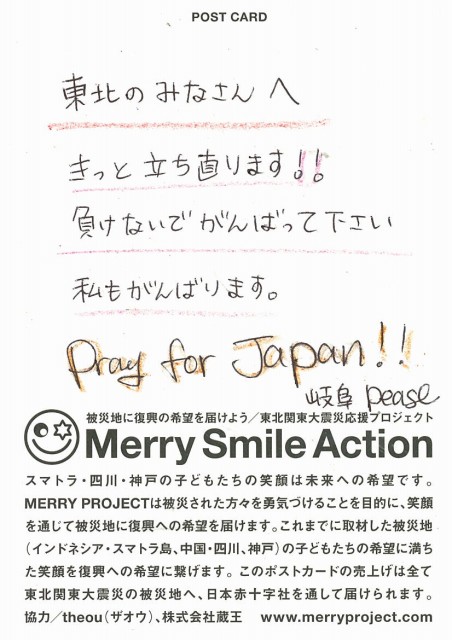 POST CARD
東北のみなさんへ
きっと立ち直ります!!
負けないでがんばって下さい
私もがんばります。
Pray for Japan!!
岐阜 pease
被災地に復興の希望を届けよう／東北関東大震災応援プロジェクト
Merry Smile Action
スマトラ・四川・神戸の子どもたちの笑顔は未来への希望です。
MERRY PROJECTは被災された方々を勇気づけることを目的に、笑顔
を通じて被災地に復興への希望を届けます。これまでに取材した被災地
（インドネシア・スマトラ島、中国・四川、神戸）の子どもたちの希望に満ち
た笑顔を復興への希望に繋げます。このポストカードの売上げは全て
東北関東大震災の被災地へ、日本赤十字社を通して届けられます。
協力／theou（ザオウ）、株式会社蔵王 www.merryproject.com